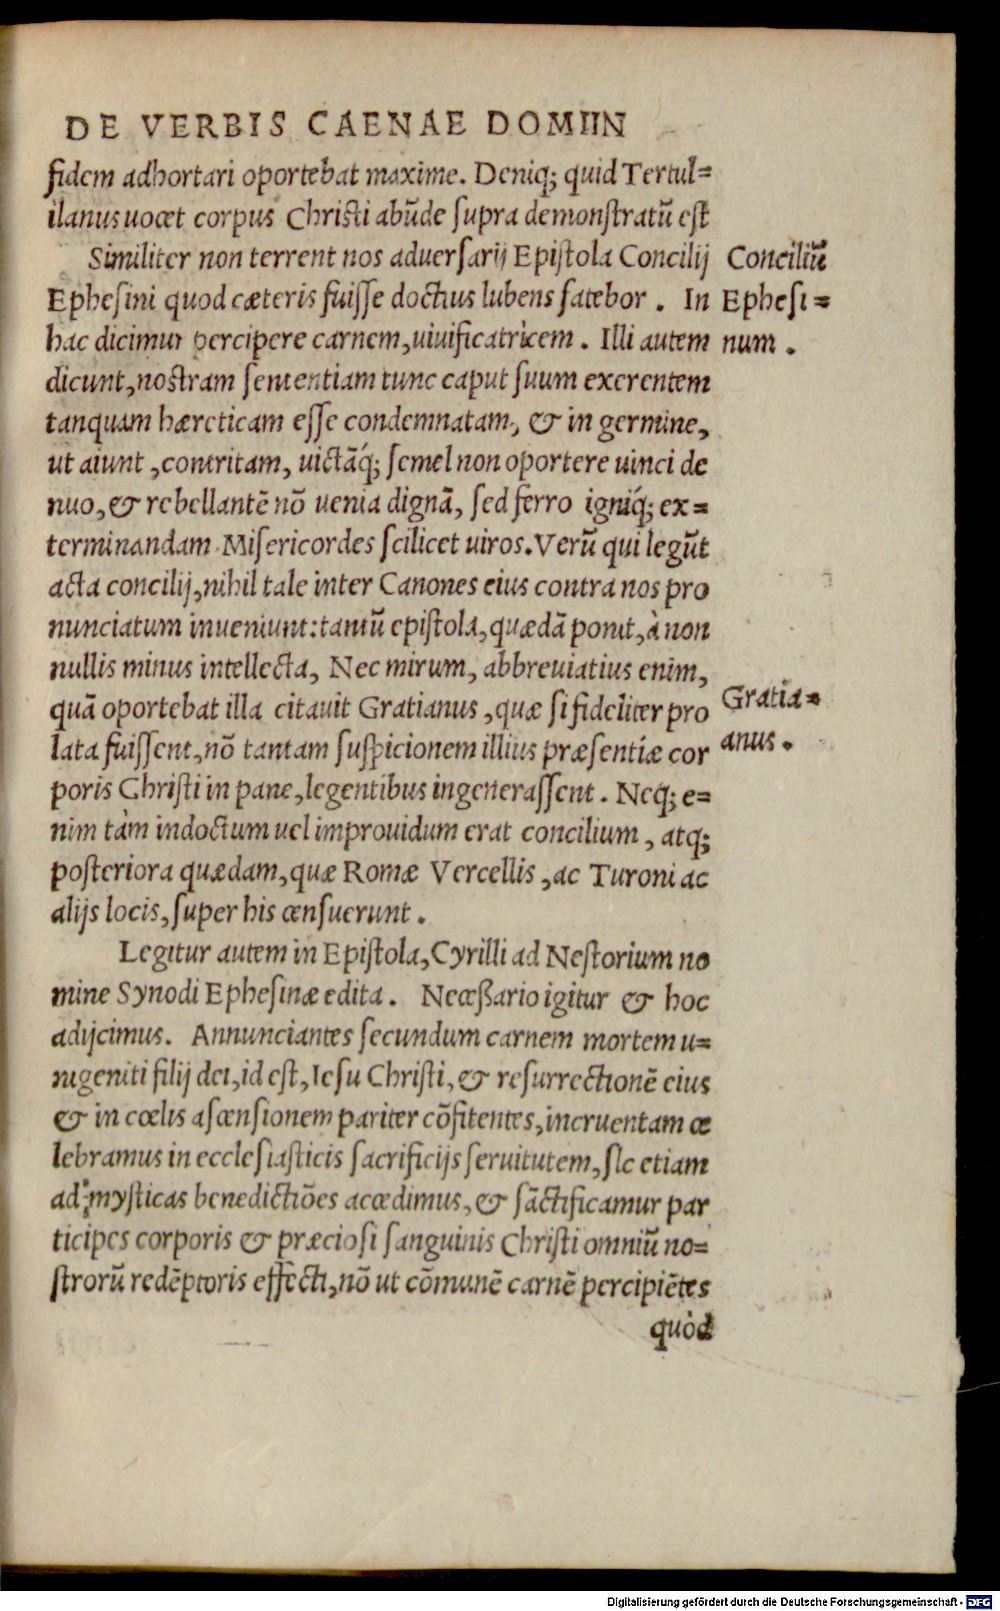 DE VERBIS CAENAE DOMIIN
fidem adhortari oportebat maxime. Deniq; quid Tertul=
ilanus uocet corpus Christi abūde supra demonstratū est
Similiter non terrent nos aduersarij Epistola Concilij
Conciliū
Ephesini quod cæteris fuisse doctius lubens fatebor. In
Ephesi=
hac dicimur percipere carnem, uiuificatricem. Illi autem
num.
dicunt, nostram sententiam tunc caput suum exerentem
tanquam hæreticam esse condemnatam, & in germine,
ut aiunt, contritam, uictāq́; semel non oportere uinci de
nuo, & rebellantē nō uenia dignā, sed ferro igniq́; ex=
terminandam. Misericordes scilicet uiros. Verū qui legūt
acta concilij, nihil tale inter Canones eius contra nos pro
nunciatum inueniunt: tantū epistola, quædā ponit, à non
nullis minus intellecta, Nec mirum, abbreuiatius enim,
quā oportebat illa citauit Gratianus, quæ si fideliter pro
Gratia=
lata fuissent, nō tantam suspicionem illius præsentiæ cor
anus.
poris Christi in pane, legentibus ingenerassent. Neq; e=
nim tàm indoctum uel improuidum erat concilium, atq;
posteriora quædam, quæ Romæ Vercellis, ac Turoni ac
alijs locis, super his censuerunt.
Legitur autem in Epistola, Cyrilli ad Nestorium no
mine Synodi Ephesinæ edita. Neceßario igitur & hoc
adijcimus. Annunciantes secundum carnem mortem u=
nigeniti filij dei, id est, Iesu Christi, & resurrectionē eius
& in cœlis ascensionem pariter cōfitentes, incruentam ce
lebramus in ecclesiasticis sacrificijs seruitutem, sic etiam
ad mysticas benedictiōes accedimus, & sāctificamur par
ticipes corporis & præciosi sanguinis Christi omniū no=
strorū redēptoris effecti, nō ut cōmunē carnē percipiētes
quòd
Digitalisierung gefördert durch die Deutsche Forschungsgemeinschaft - DFG